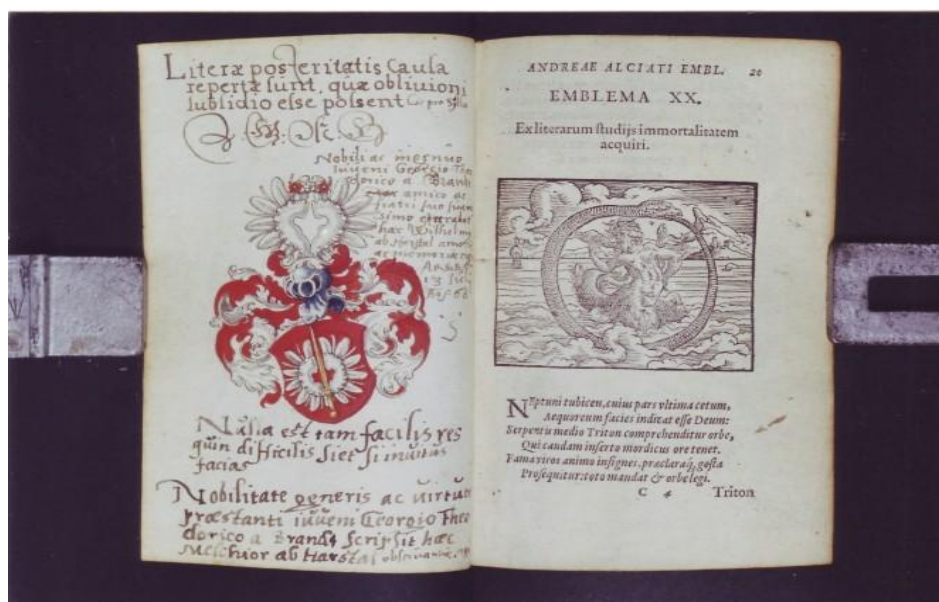 Literæ posteritatis Causa
repertæ sunt, quæ oblivioni
subsidio esse possent
Nobili ac ingenuo
iuveni Georgio Theo
dorico a Brandt
amico ac
fratri suo
simo
hæc Wilhelm
ab Harstal
ac memoriæ
13
Nulla est tam facilis res
quin difficilis siet si invitus
facias
Nobilitate generis ac virtute
præstanti iuveni Georgio Theo
dorico a Brandt scripsit hæc
Melchior ab Harstal
ANDREAE ALCIATI EMBL. 20
EMBLEMA XX.
Ex literarum studijs immortalitatem
acquiri.
Neptuni tubicen, cuius pars vltima cetum,
Aequoreum facies indicat esse Deum:
Serpentis medio Triton comprehenditur orbe,
Qui caudam inserto mordicus ore tenet.
Fama viros animo insignes, præclaraq́; gesta
Prosequitur: toto mandat & orbe legi.
C 4 Triton